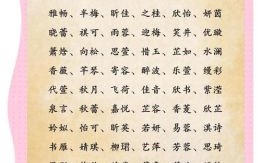 雅畅、芈梅、昕佳、之桂、欣怡、妍茵
晓蕾、祺可、雨蓉、迎梅、笑卉、优璇
萧焓、向松、思萱、惜玉、芷如、水澜
香薇、芊琴、寄容、醉波、乐萱、缦彩
代萱、秋月、飞荷、语蓉、欣彤、紫滢
泉言、秋蕾、嘉悦、芷容、香蔓、欣芷
姈姒、怡可、昕芙、若妍、易蓉、淇诗
书雁、婧琪、柳珺、艺萍、芳蓉、思琪